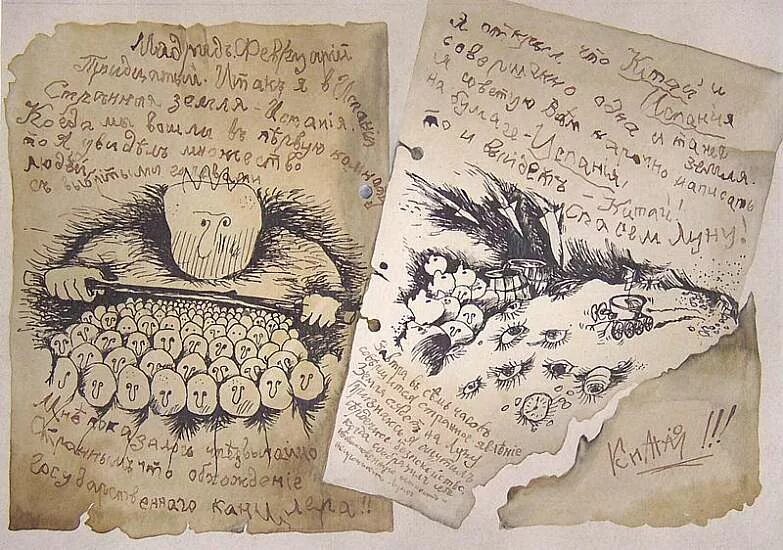 Мадридъ. Февруарій
Тридцатый. Итакъ я въ Испаніи
Странная земля - Испанія.
Когда мы вошли въ первую комнату
то я увидѣлъ множество
людей
съ выбритыми головами
Мнѣ показалось чрезвычайно
страннымъ что обхожденіе
государственного канцлера!!
Я открыл что Китай и
Испания
совершенно одна и таже земля.
я советую вам нарочно написать
на бумаге - Испанія!
то и выйдетъ - Китай!!
Спасем Луну!
Завтра въ семь часовъ
совершится странное явленіе
Земля сядетъ на Луну
Признаюсь я
безпокойство
когда
Китай!!!